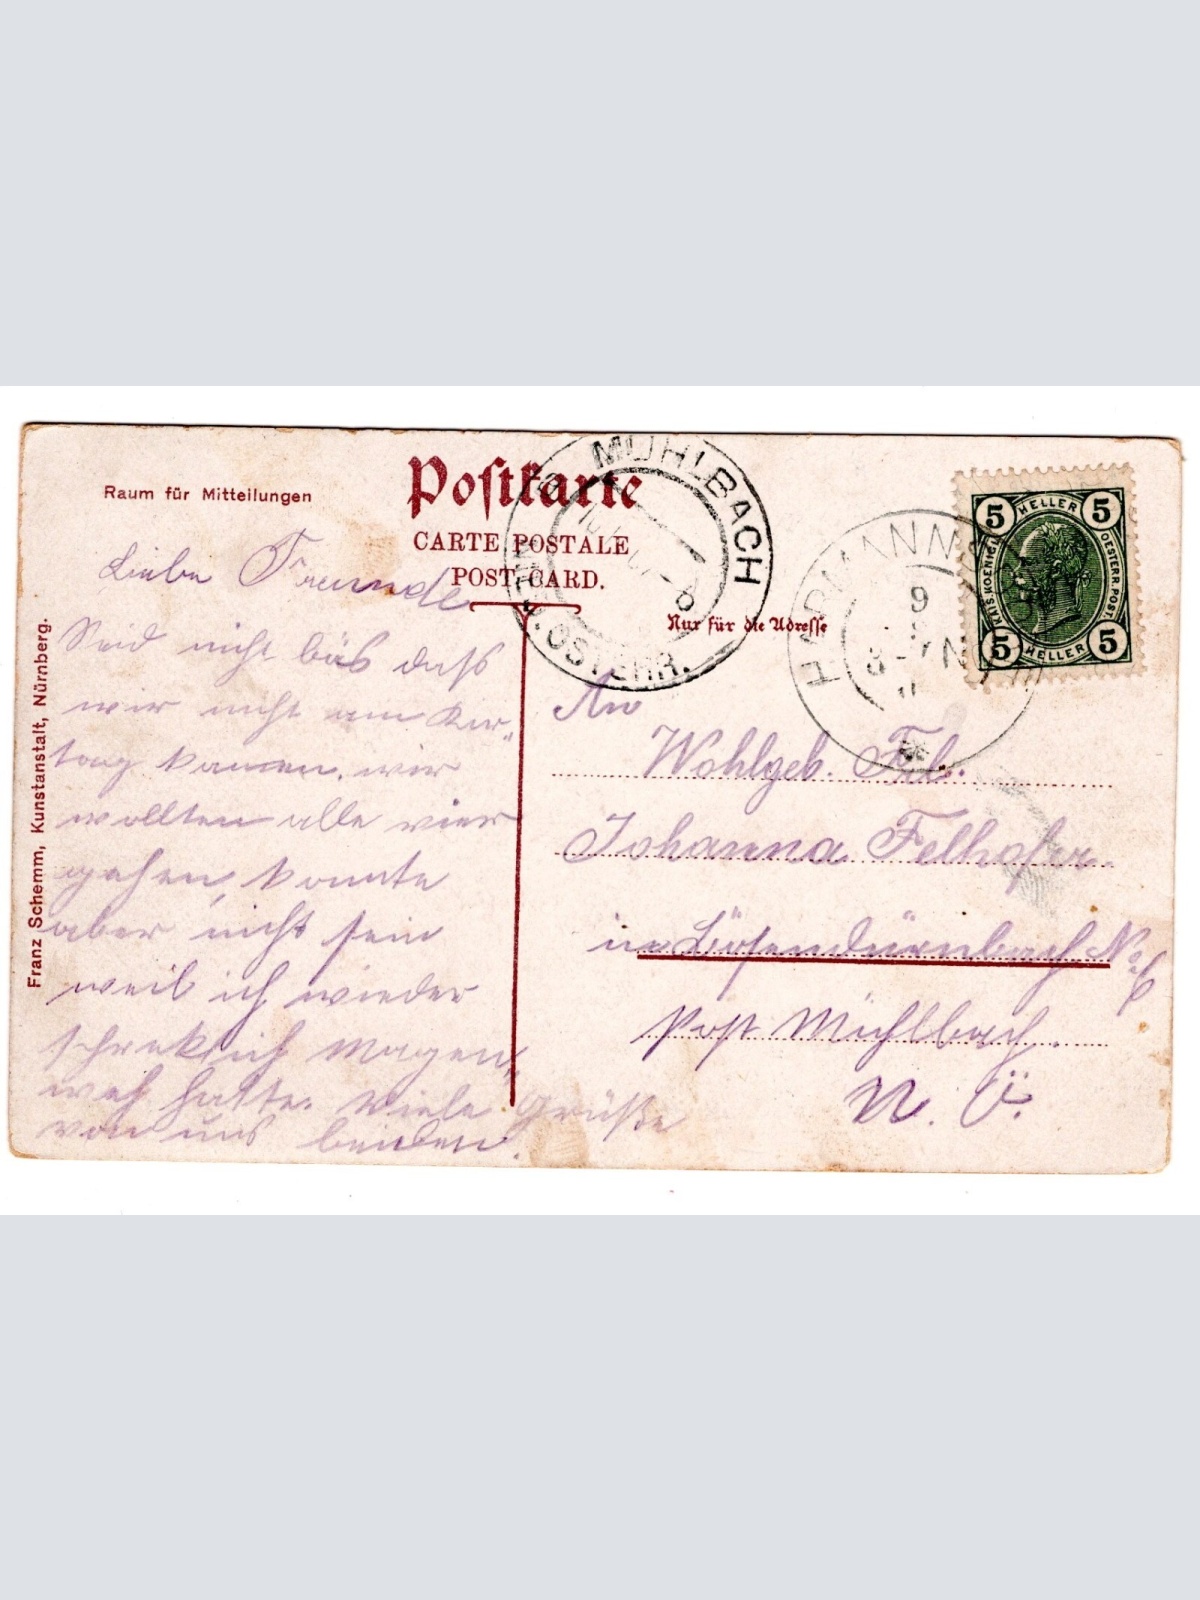 Raum für Mitteilungen
Postkarte
CARTE POSTALE
POST-CARD.
Nur für die Adresse
Franz Schemm, Kunstanstalt, Nürnberg.
MÜHLBACH
5 HELLER 5
KAIS. KOENIGL. OESTERR. POST.
5 HELLER 5
Liebe Freunde
Seid nicht bös daß
wir nicht am Kir„
tag kamen, wir
wollten alle vier
gehen, konnte
aber nicht sein
weil ich wieder
schreklich Magen„
weh hatte. Viele Grüße
von uns beiden.
An
Wohlgeb. Frl.
Johanna Felhofer
in Bösendürnbach No 6
Post Mühlbach.
N. Ö.